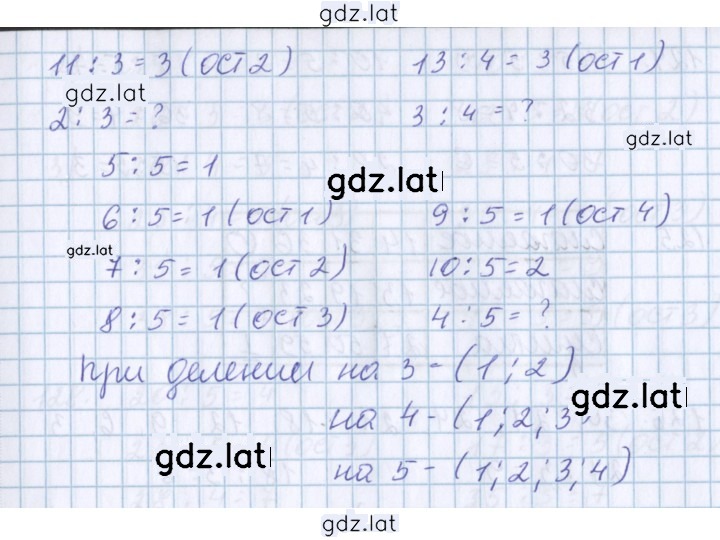 gdz.lat
11 : 3 = 3 (ост 2) 13 : 4 = 3 (ост 1)
gdz.lat
2 : 3 = ? 3 : 4 = ?
gdz.lat
5 : 5 = 1
gdz.lat
6 : 5 = 1 (ост 1) 9 : 5 = 1 (ост 4)
gdz.lat
7 : 5 = 1 (ост 2) 10 : 5 = 2
8 : 5 = 1 (ост 3) 4 : 5 = ?
При делении на 3 - (1; 2)
gdz.lat
на 4 - (1; 2; 3
gdz.lat
на 5 - (1; 2; 3; 4)
gdz.lat